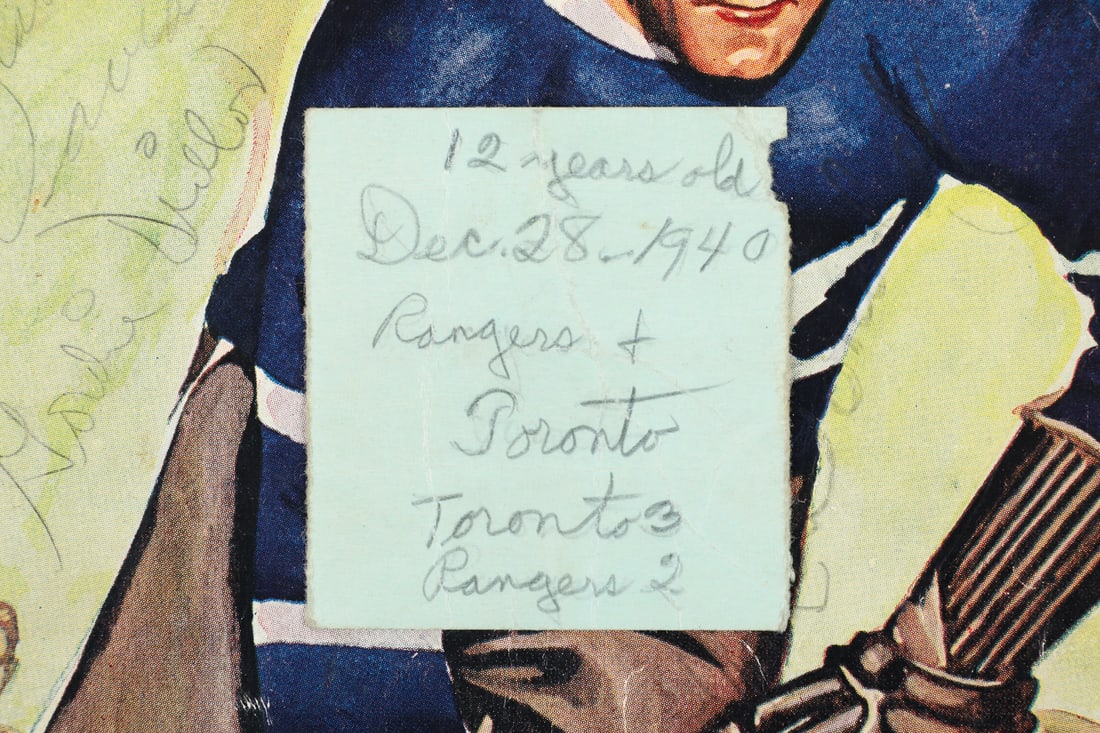 12 years old
Dec. 28. 1940
Rangers +
Toronto
Toronto 3
Rangers 2
Gordie Drillon